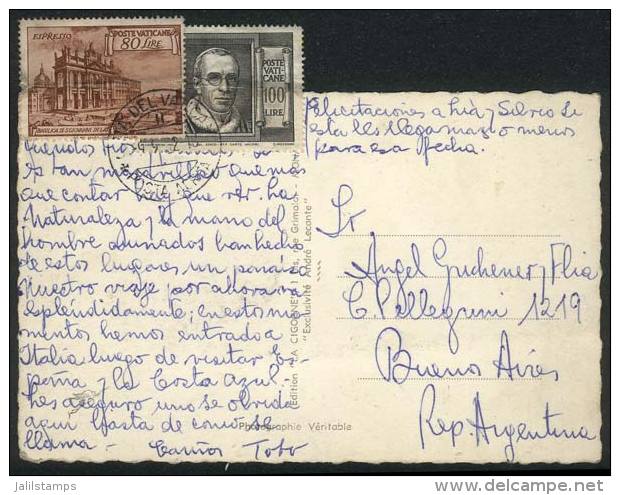 ESPRESSO POSTE VATICANE
80 LIRE
BASILICA DI S. GIOVANNI IN LAT
POSTE
VATI-
CANE
100
LIRE
POSTA
Felicitaciones a Lia y Silvio si
esta les llega mas o menos
para esa fecha.
Es tan maravilloso que mas
que contar hay que ver. La
Naturaleza y la mano del
hombre aunados han hecho
de estos lugares un paraiso
Nuestro viaje por ahora va
espléndidamente; en estos mo
mentos hemos entrado a
Italia luego de visitar Es-
paña y la Costa Azul.
Les aseguro uno se olvida
aquí hasta de como se
llama - Cariños Toto
Edition "LA CIGOGNE" rue Grimaldi
"Exclusivité André Leconte"
Photographie Véritable
Sr.
Angel Guchener y Flia
C. Pellegrini 1219
Buenos Aires
Rep. Argentina
jalilstamps
delcampe.net